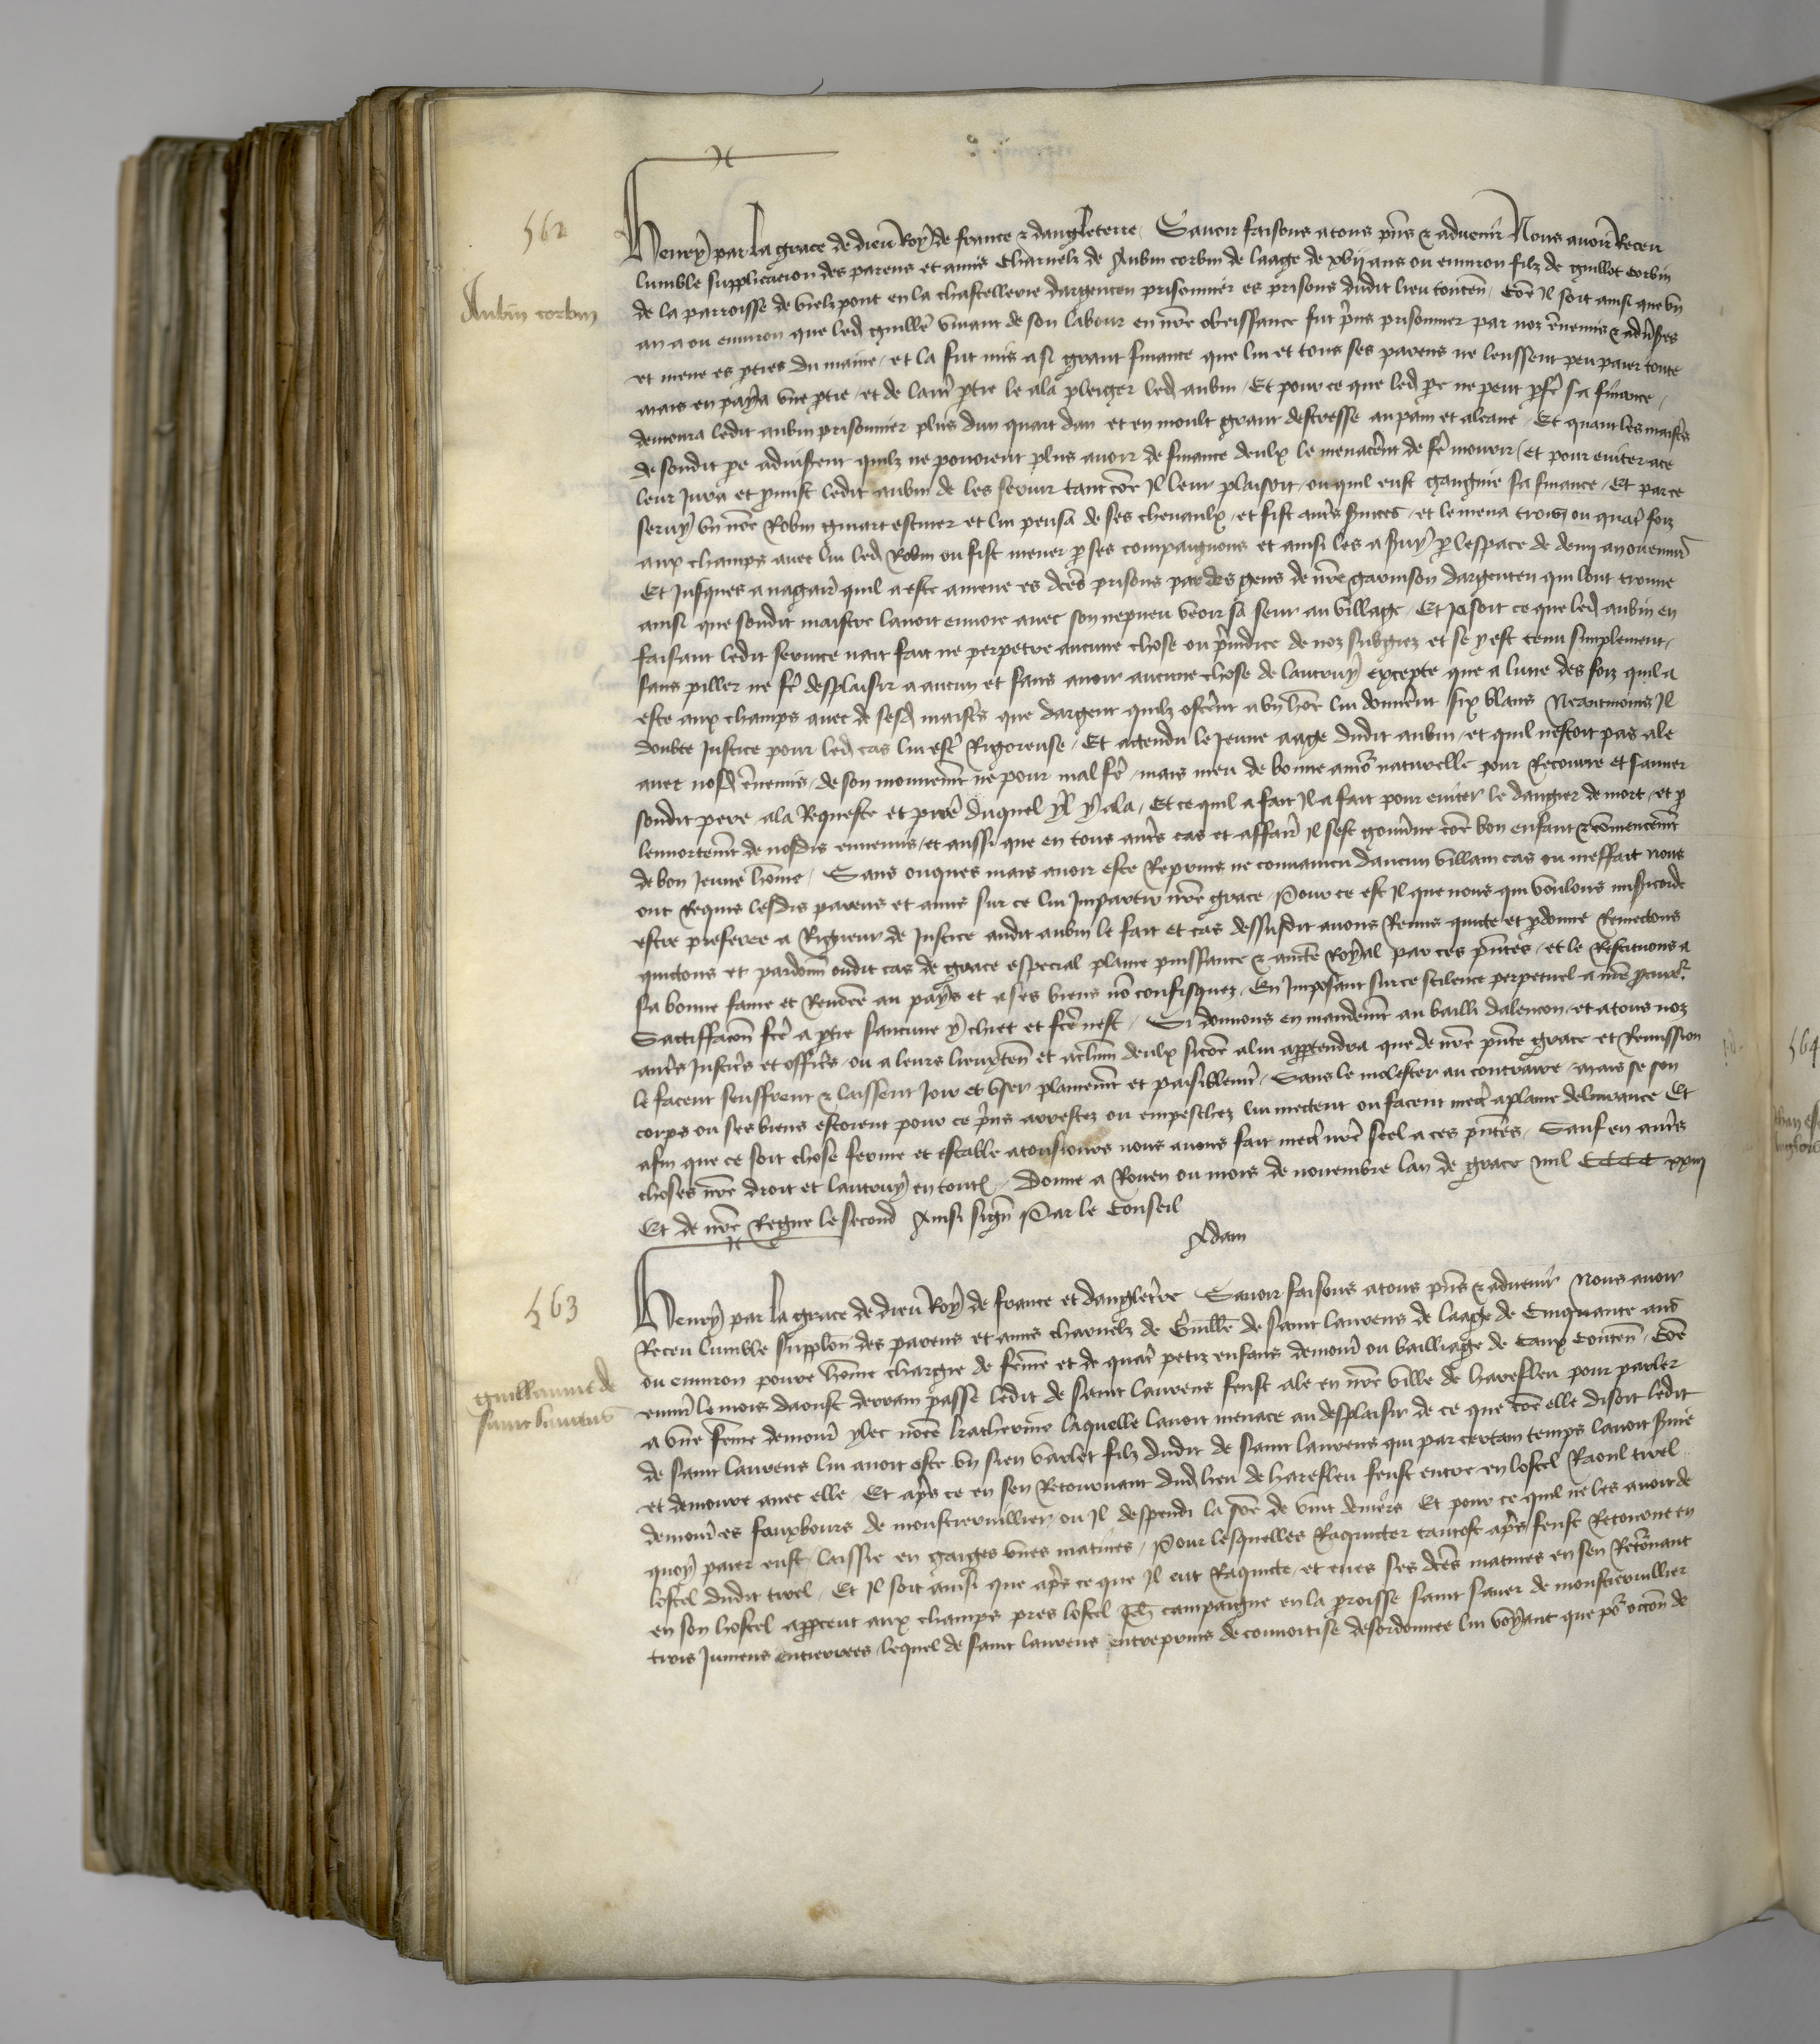 562
Henry par la grace de dieu Roy de france & dangleterre Savoir faisons atous pns & advenir Nous avoir Receu
lumble supplicacion des parens et amis charnelz de Aubin corbin de laage de xvij ans ou environ filz de guillot corbin
Aubin corbin
de la parroisse de vielzpont en la chastellerie dargenten prisonnier es prisons dudit lieu contenn Coe Il soit ainsi que un
an a ou environ que led guille vivant de son labour en nre obeissance fut pns prisonnier par noz ennemis & advsres
et mene es pties du maine et la fut mis a si grant finance que lui et tous ses parens ne leussent peu paier toute
mais en paya une ptie et de laut ptie le ala pleiger led aubin Et pour ce que led pe ne peut pfe sa finance
demoura ledit aubin prisonnier plus dun quart dan et en moult grant destresse au pain et aleaue Et quant les maists
de sondit pe adviserent quilz ne povoient plus avoir de finance deulx le menacernt de fe mourir et pour eviter ace
leur Jura et pmist ledit aubin de les servir tant coe Il leur plairoit ou quil eust gaignie sa finance Et par ce
servy un nome Robin guiart escuier et lui pensa de ses chevaulx et fist auts svices et le mena trois ou quat foiz
aux champs avec lui led Robin ou fist mener p ses compaignons et ainsi les a svy p lespace de demi an ou envir
Et Jusques a nagair quil a este amene es dces prisons par des gens de nre garnison dargenten qui lont trouve
ainsi que sondit maistre lavoit envoie avec son nepveu veoir sa seur au village Et Ja soit ce que led aubin en
faisant ledit service nait fait ne perpetre aucune chose ou pjudice de noz subgiez et se y est tenu simplement
sans piller ne fe desplaisir a aucun et sans avoir aucune chose de lautruy excepte que a lune des foiz quil a
este aux champs avec de sesd maists que dargent quilz osternt a un hoe lui donnernt six blans Neantmoins Il
doubte Justice pour led cas lui est Rigoreuse Et actendu le Jeune aage dudit aubin et quil nestoit pas ale
avec nosd ennemis de son mouvemt ne pour mal fe mais meu de bonne amor naturelle pour Recouvre et sauver
sondit pere ala Requeste et prie duquel yl y ala Et ce quil a fait Il a fait pour eviter le dangier de mort et p
lennortemt de nosdis ennemis et aussi que en tous auts cas et affair Il sest gouvne coe bon enfant & comencemt
de bon Jeune home Sans onques mais avoir este Reprins ne convaincu daucun villain cas ou meffait nous
ont Requis lesdis parens et amis sur ce lui Impartir nre grace Pour ce est Il que nous qui voulons misicorde
estre preferee a Rigueur de Justice audit aubin le fait et cas dessusdit avons Remis quicte et pdonne Remectons
quictons et pardonn oudit cas de grace especial plaine puissance & aucte Royal par ces pntes et le Restituons a
sa bonne fame et Renome au pays et a ses biens no confisquez En Imposant sur ce scilence perpetuel a nre pcur
Sattiffacon fce a ptie saucune y chiet et fce nest Si donnons en mandemt au bailli dalencon et atous noz
auts Justics et offics ou a leurs lieuxten et achun deulx sicoe alui apptendra que de nre pnte grace et Remission
le facent seuffrent & laissent Joir et user plainemt et paisiblemt Sans le molester au contraire mais se son
corps ou ses biens estoient pour ce pns arrestez ou empeschez lui mectent ou facent mec aplaine delivrance Et
afin que ce soit chose ferme et estable atousiours nous avons fait mec nre scel a ces pntes Sauf en auts
choses nre droit et lautruy en toutes Donne a Rouen ou mois de novembre lan de grace mil CCCC xxiij
Et de nre Regne le second Ainsi signe Par le Conseil
Adam
563
Henry par la grace de dieu Roy de france et dangleterre Savoir faisons atous pns & advenir Nous avoir
Receu lumble supplon des parens et amis charnelz de Guille de saint laurens de laage de Cinquante ans
guillaume de saint laurens
ou environ povre home chargie de feme et de quat petiz enfans demour ou bailliage de Caux contenn Coe
envir le mois daoust derrain passe ledit de saint laurens feust ale en nre ville de harefleu pour parler
a une feme demour ylec nomee katherine laquelle lavoit menace au desplaisir de ce que coe elle disoit ledit
de saint laurens lui avoit oste un sien varlet filz dudit de saint laurens qui par certain temps lavoit svie
et demoure avec elle Et aps ce en sen Retournant dud lieu de harefleu feust entre en lostel Raoul tirel
demour es fauxbours de monstiervillier ou Il despendi la soe de vint deniers Et pour ce quil ne les avoit de
quoy paier eust laissie en gaiges unes matines Pour lesquelles Raquicter tantost aps feust Retourne en
lostel dudit tirel Et Il soit ainsi que aps ce que Il eut Raquicte et eues ses dces matines en sen Retornant
en son hostel appceut aux champs pres lostel Jeh campaigne en la proisse saint saver de monstiervillier
trois Jumens entierrees lequel de saint laurens entreprins de convoitise desordonnee lui voyant que por occon de
564